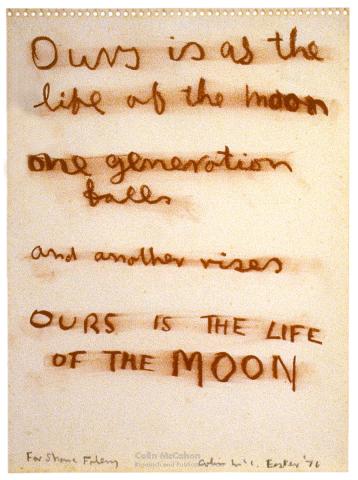 Ours is as the
life of the moon
one generation
falls
and another rises
OURS IS THE LIFE
OF THE MOON
For Shane
Colin McC. Easter '76
Colin McCahon
Research and Publication